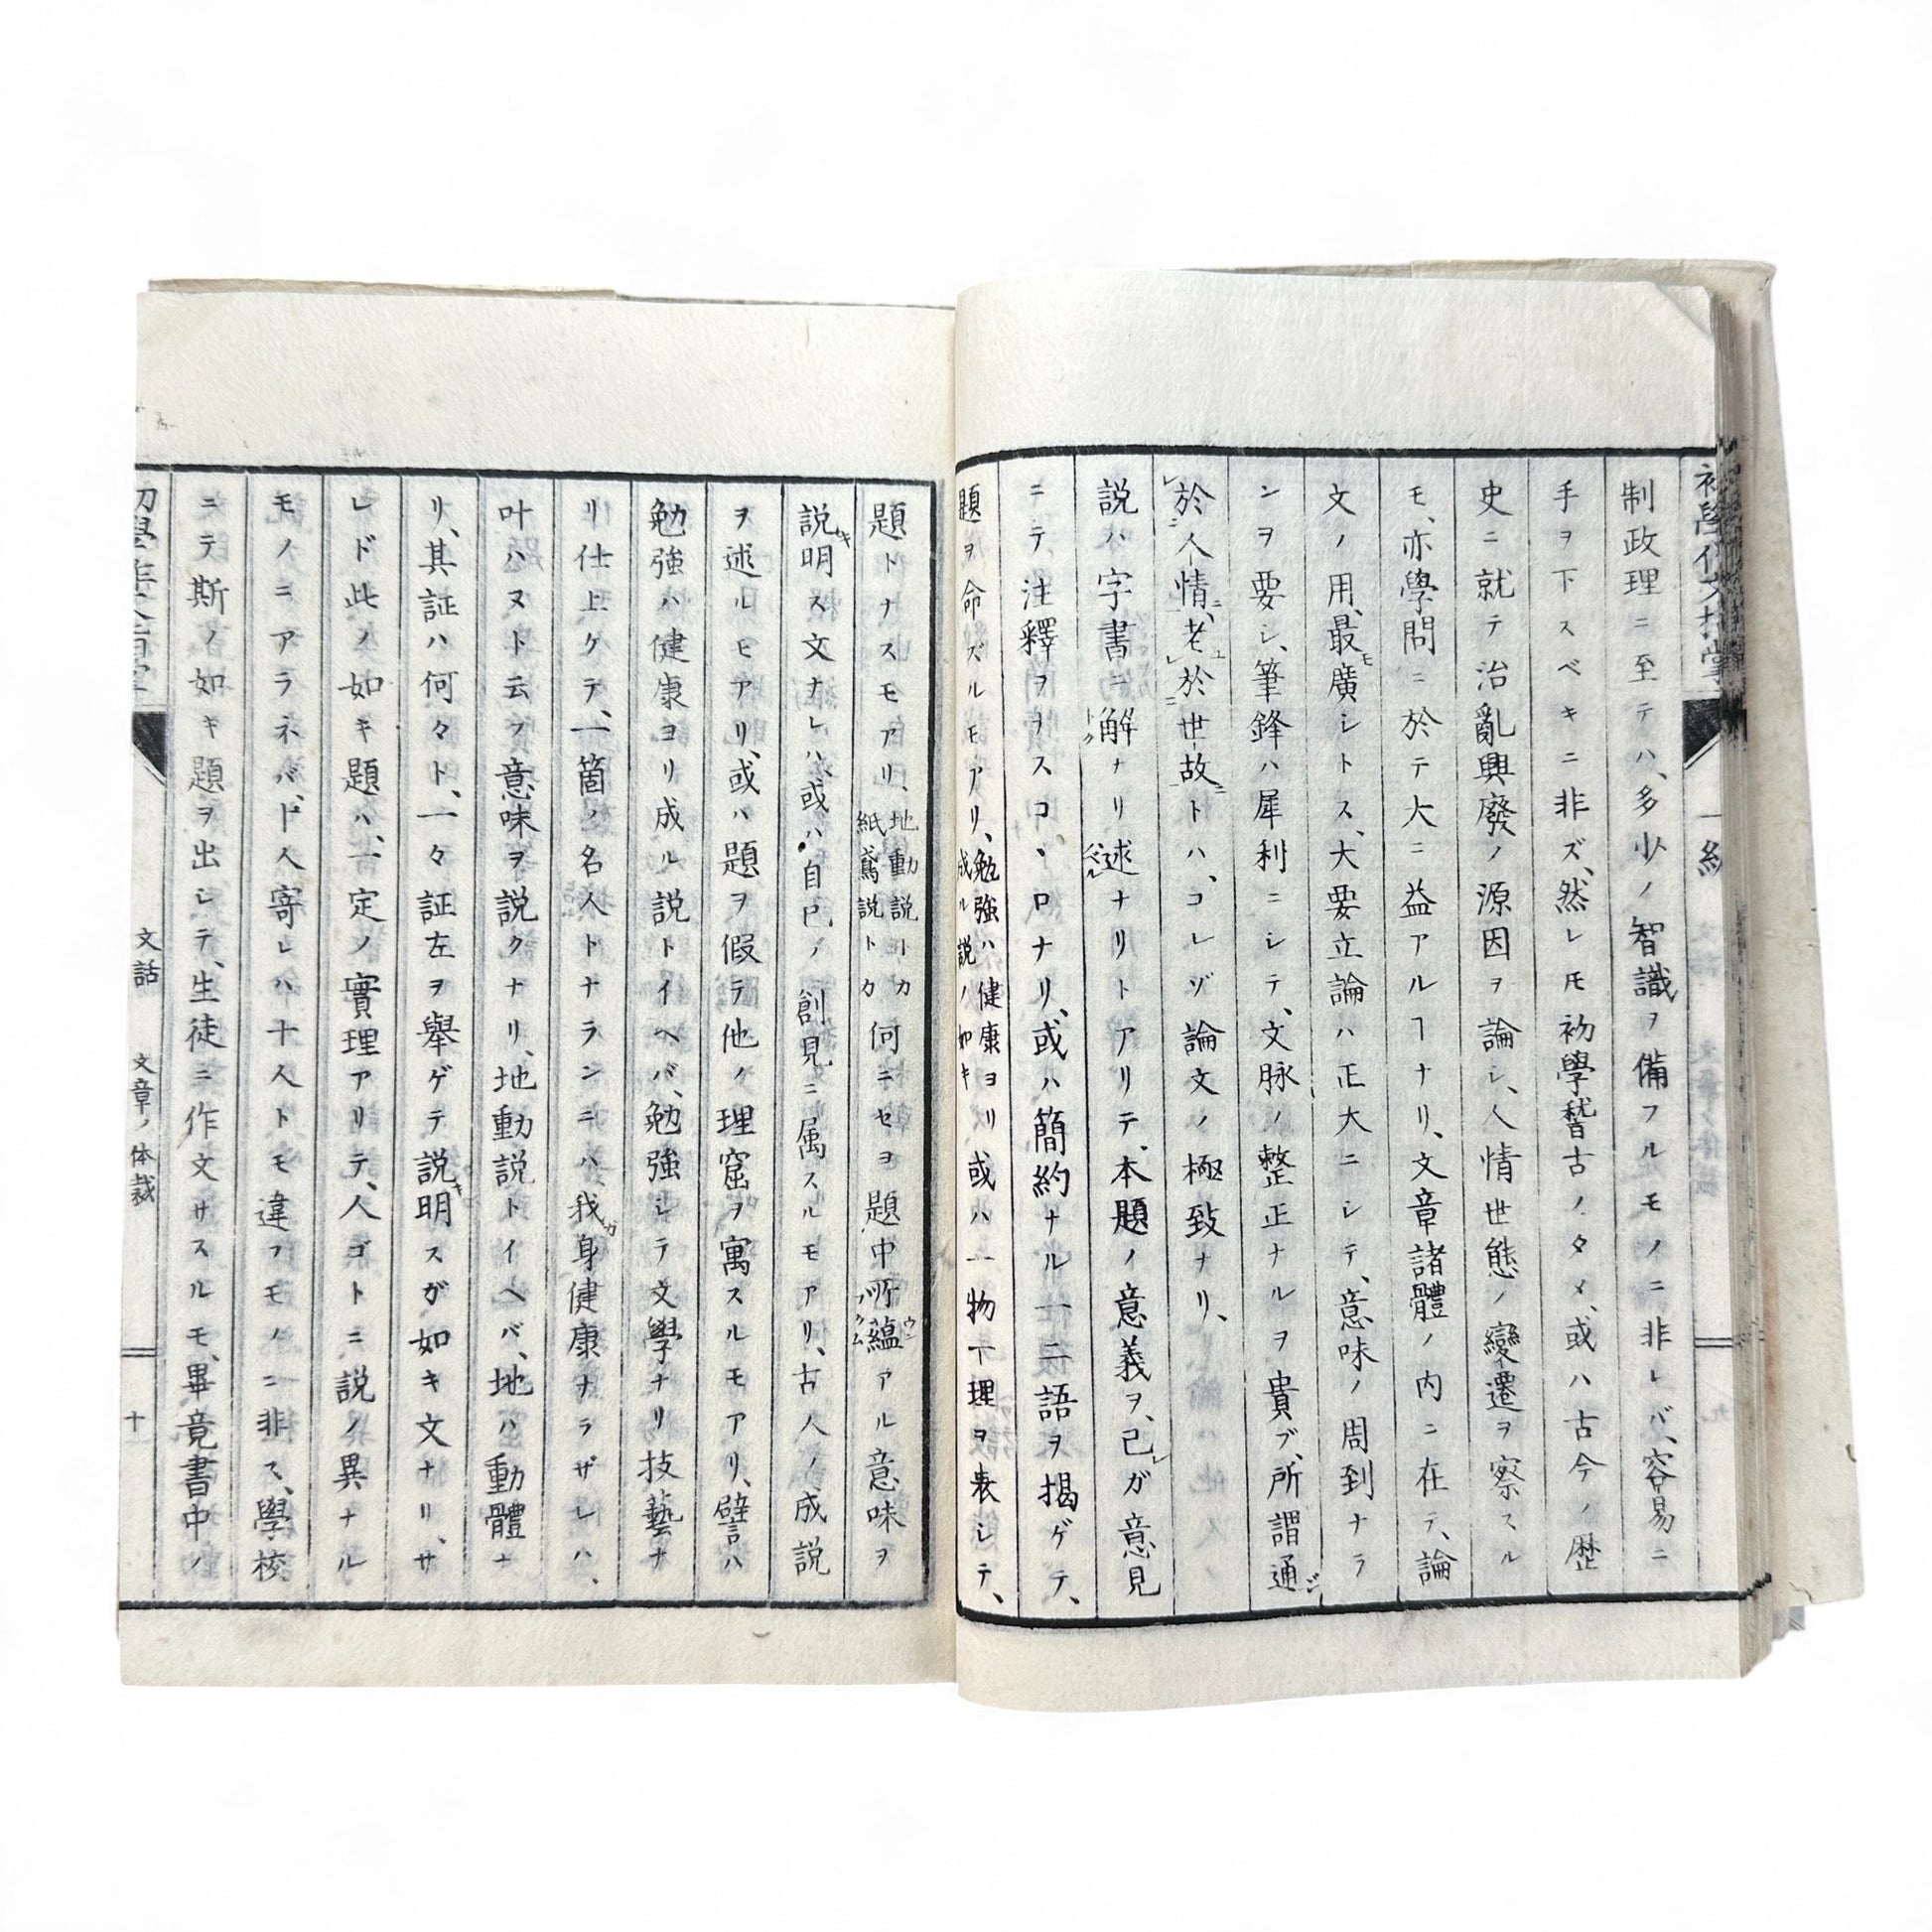 制政理ニ至テハ、多少ノ智識ヲ備フルモノニ非レバ、容易ニ
手ヲ下スベキニ非ズ、然レ𪜈初學稽古ノタメ、或ハ古今ノ歴
史ニ就テ治亂興廢ノ源因ヲ論シ、人情世態ノ變遷ヲ察スル
モ、亦學問ニ於テ大ニ益アルヿナリ、文章諸體ノ内ニ在テ、論
文ノ用、最モ廣シトス、大要立論ハ正大ニシテ、意味ノ周到ナラ
ンヲ要シ、筆鋒ハ犀利ニシテ、文脉ノ整正ナルヲ貴ブ、所謂通ジ
於人情、老於世故トハ、コレゾ論文ノ極致ナリ、
説ハ字書ニ解ナリ述ナリトアリテ、本題ノ意義ヲ、己レガ意見
ニテ注釋ヲヲスコヽロナリ、或ハ簡約ナル一二語ヲ揭ゲテ、
題ヲ命ズルモアリ、勉強ハ健康ヨリ成ル説ノ如キ或ハ一物一理ヲ表シテ、
題トナスモアリ、地動説トカ紙鳶説トカ何ニセヨ題中所蘊アル意味ヲ
説キ明ス文ナレハ、或ハ自己ノ創見ニ属スルモアリ、古人ノ成説
ヲ述ルモアリ、或ハ題ヲ假テ他ノ理窟ヲ寓スルモアリ、譬ハ
勉強ハ健康ヨリ成ル説トイヘバ、勉強シテ文學ナリ技藝ナ
リ仕上ケテ、一箇ノ名人トナランニハ、我ガ身健康ナラザレハ、
叶ハヌト云フ意味ヲ説クナリ、地動説トイヘバ、地ハ動體ナ
リ、其証ハ何々ト、一々証左ヲ舉ゲテ説キ明スガ如キ文ナリ、サ
レド此ノ如キ題ハ、一定ノ實理アリテ、人ゴトニ説ノ異ナル
モノニアラネバ、十人寄レハ十人トモ違フモノニ非ス、學校
ニテ斯ノ如キ題ヲ出シテ、生徒ニ作文サスルモ、畢竟書中ノ
文話　文章ノ体裁
十